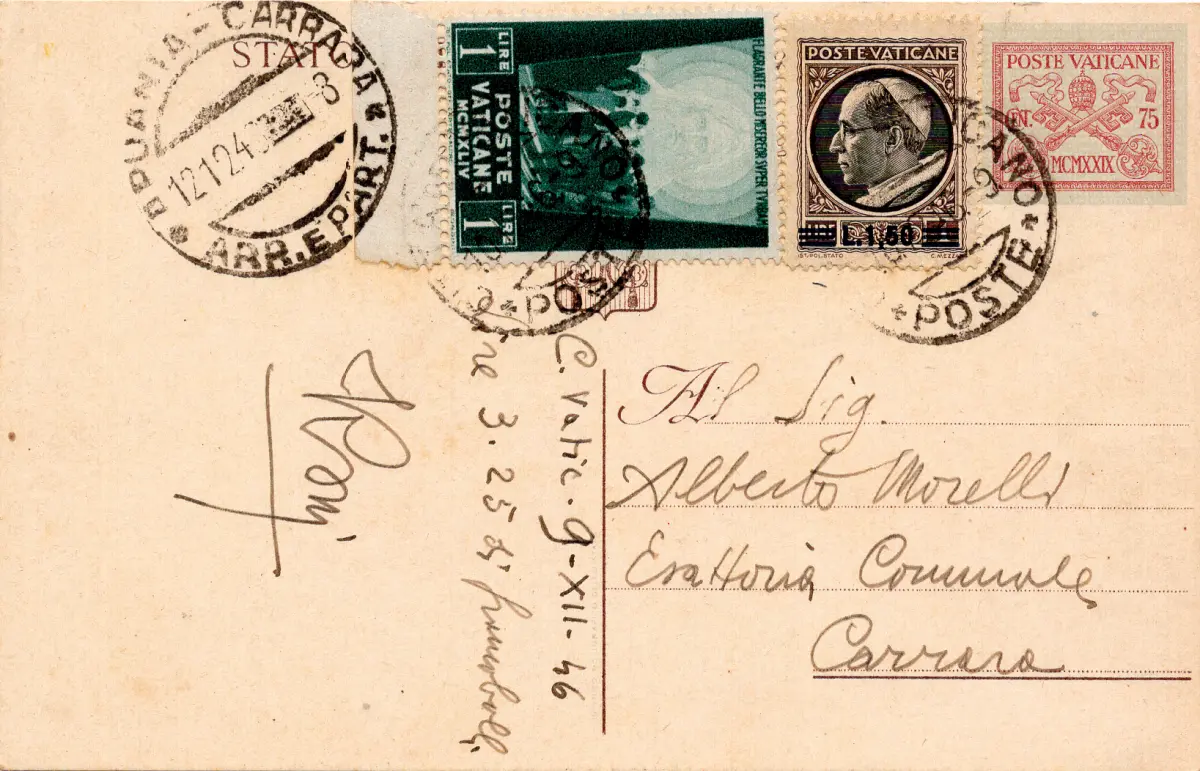 APUANIA - CARRARA
ARR. E PART.
STAT
LIRE
1
POSTE
VATICANE
MCMXLIV
1
LIRE
POSTE VATICANE
L. 1,50
IST. POL. STATO
C. MEZZA
POSTE VATICANE
CEN. 75
MCMXXIX
CANO
POSTE
POSTE
C. Vatic. 9-XII-46
3.25 di francobolli
Al Sig.
Alberto Morelli
Esattoria Comunale
Carrara